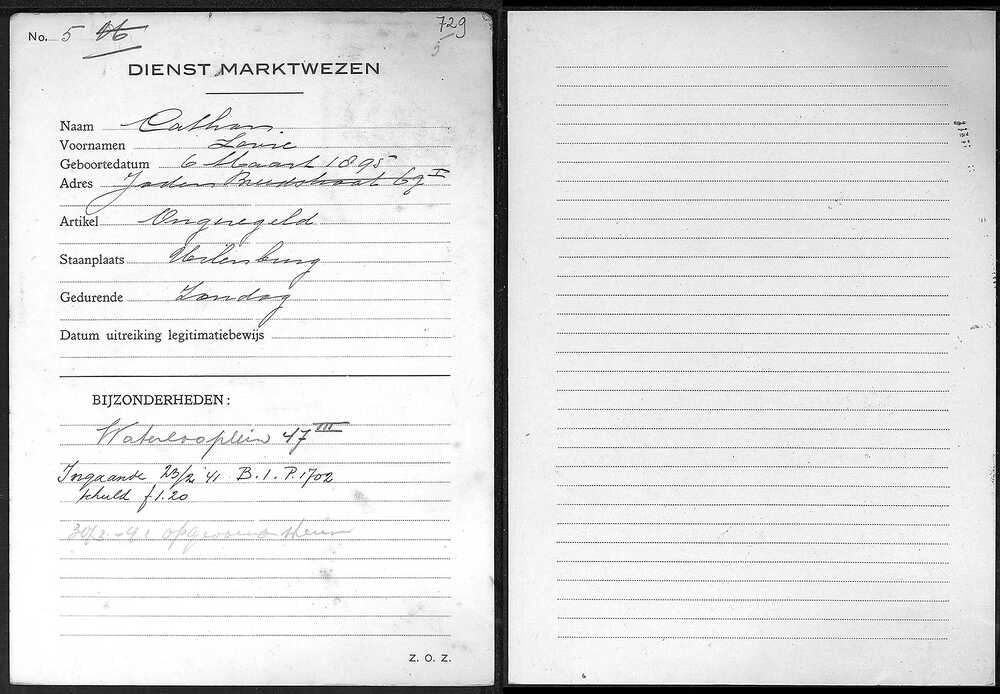 No. 5 16 729
5
DIENST MARKTWEZEN
Naam Cathari
Voornamen Louis
Geboortedatum 6 Maart 1895
Adres Joden Breestraat 69 I
Artikel Ongeregeld
Staanplaats Uilenburg
Gedurende Zondag
Datum uitreiking legitimatiebewijs
BIJZONDERHEDEN:
Waterlooplein 47 III
Ingaande 23/2 '41 B.1.P.1702
schuld f 1.20
Z. O. Z.